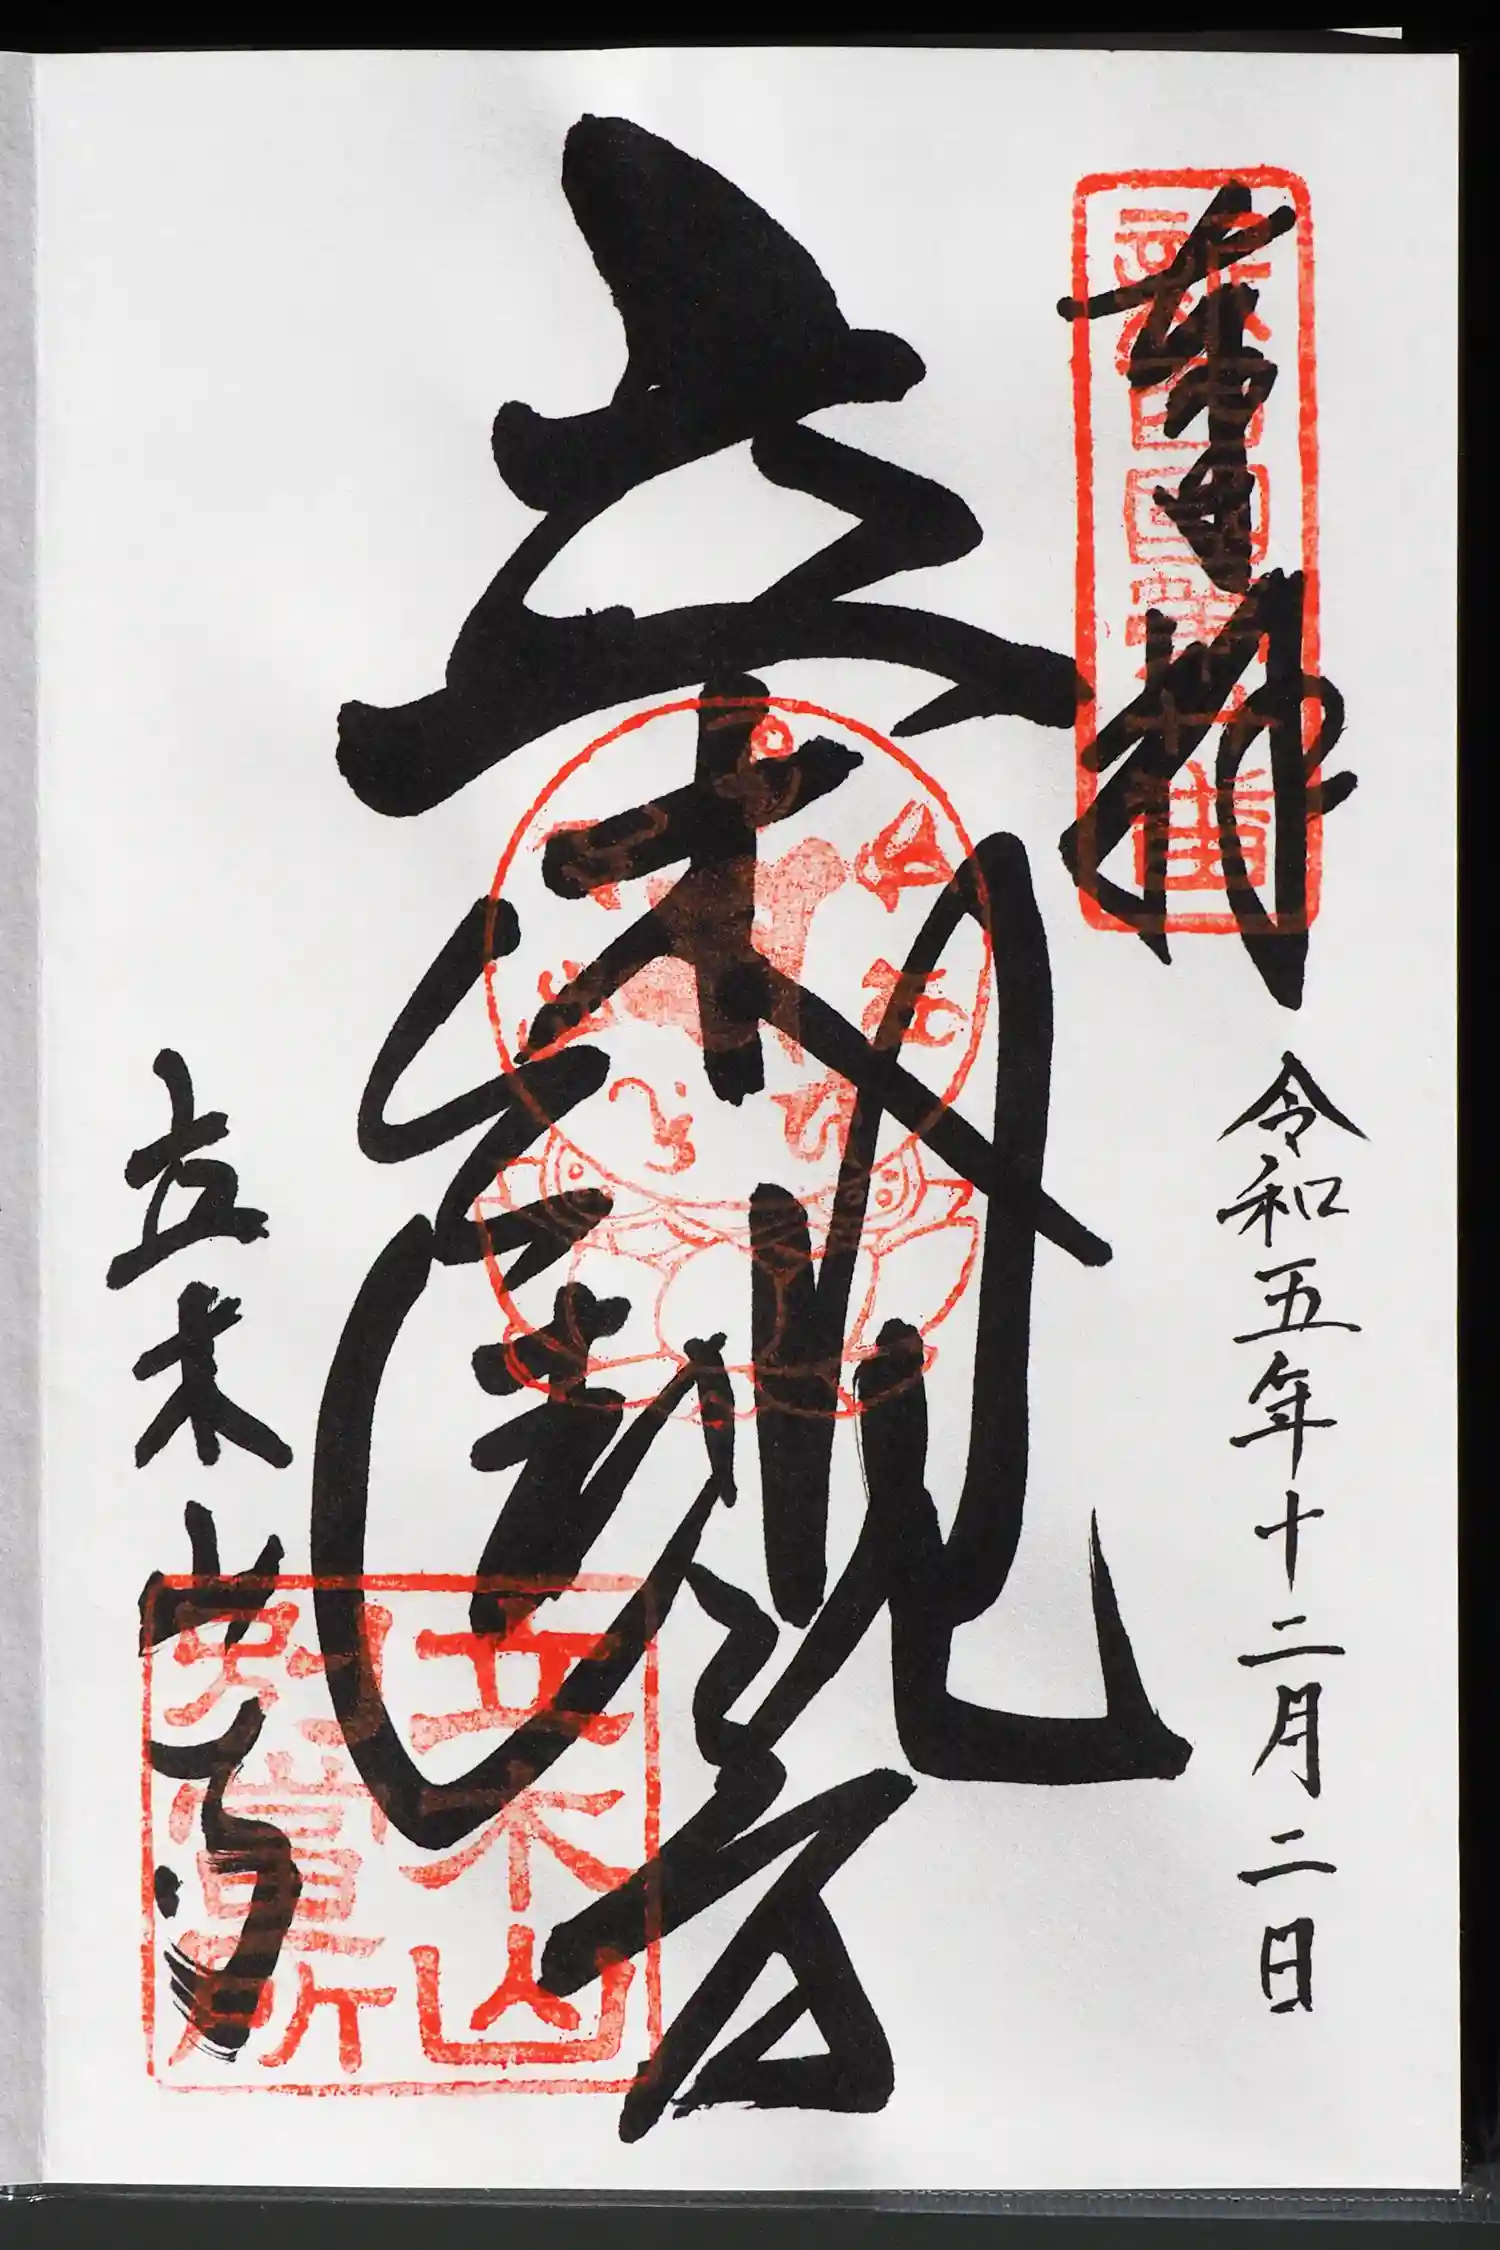 奉拝
令和五年十二月二日
新西國第廿番
立木観音
立木山寺
立木山
別當所